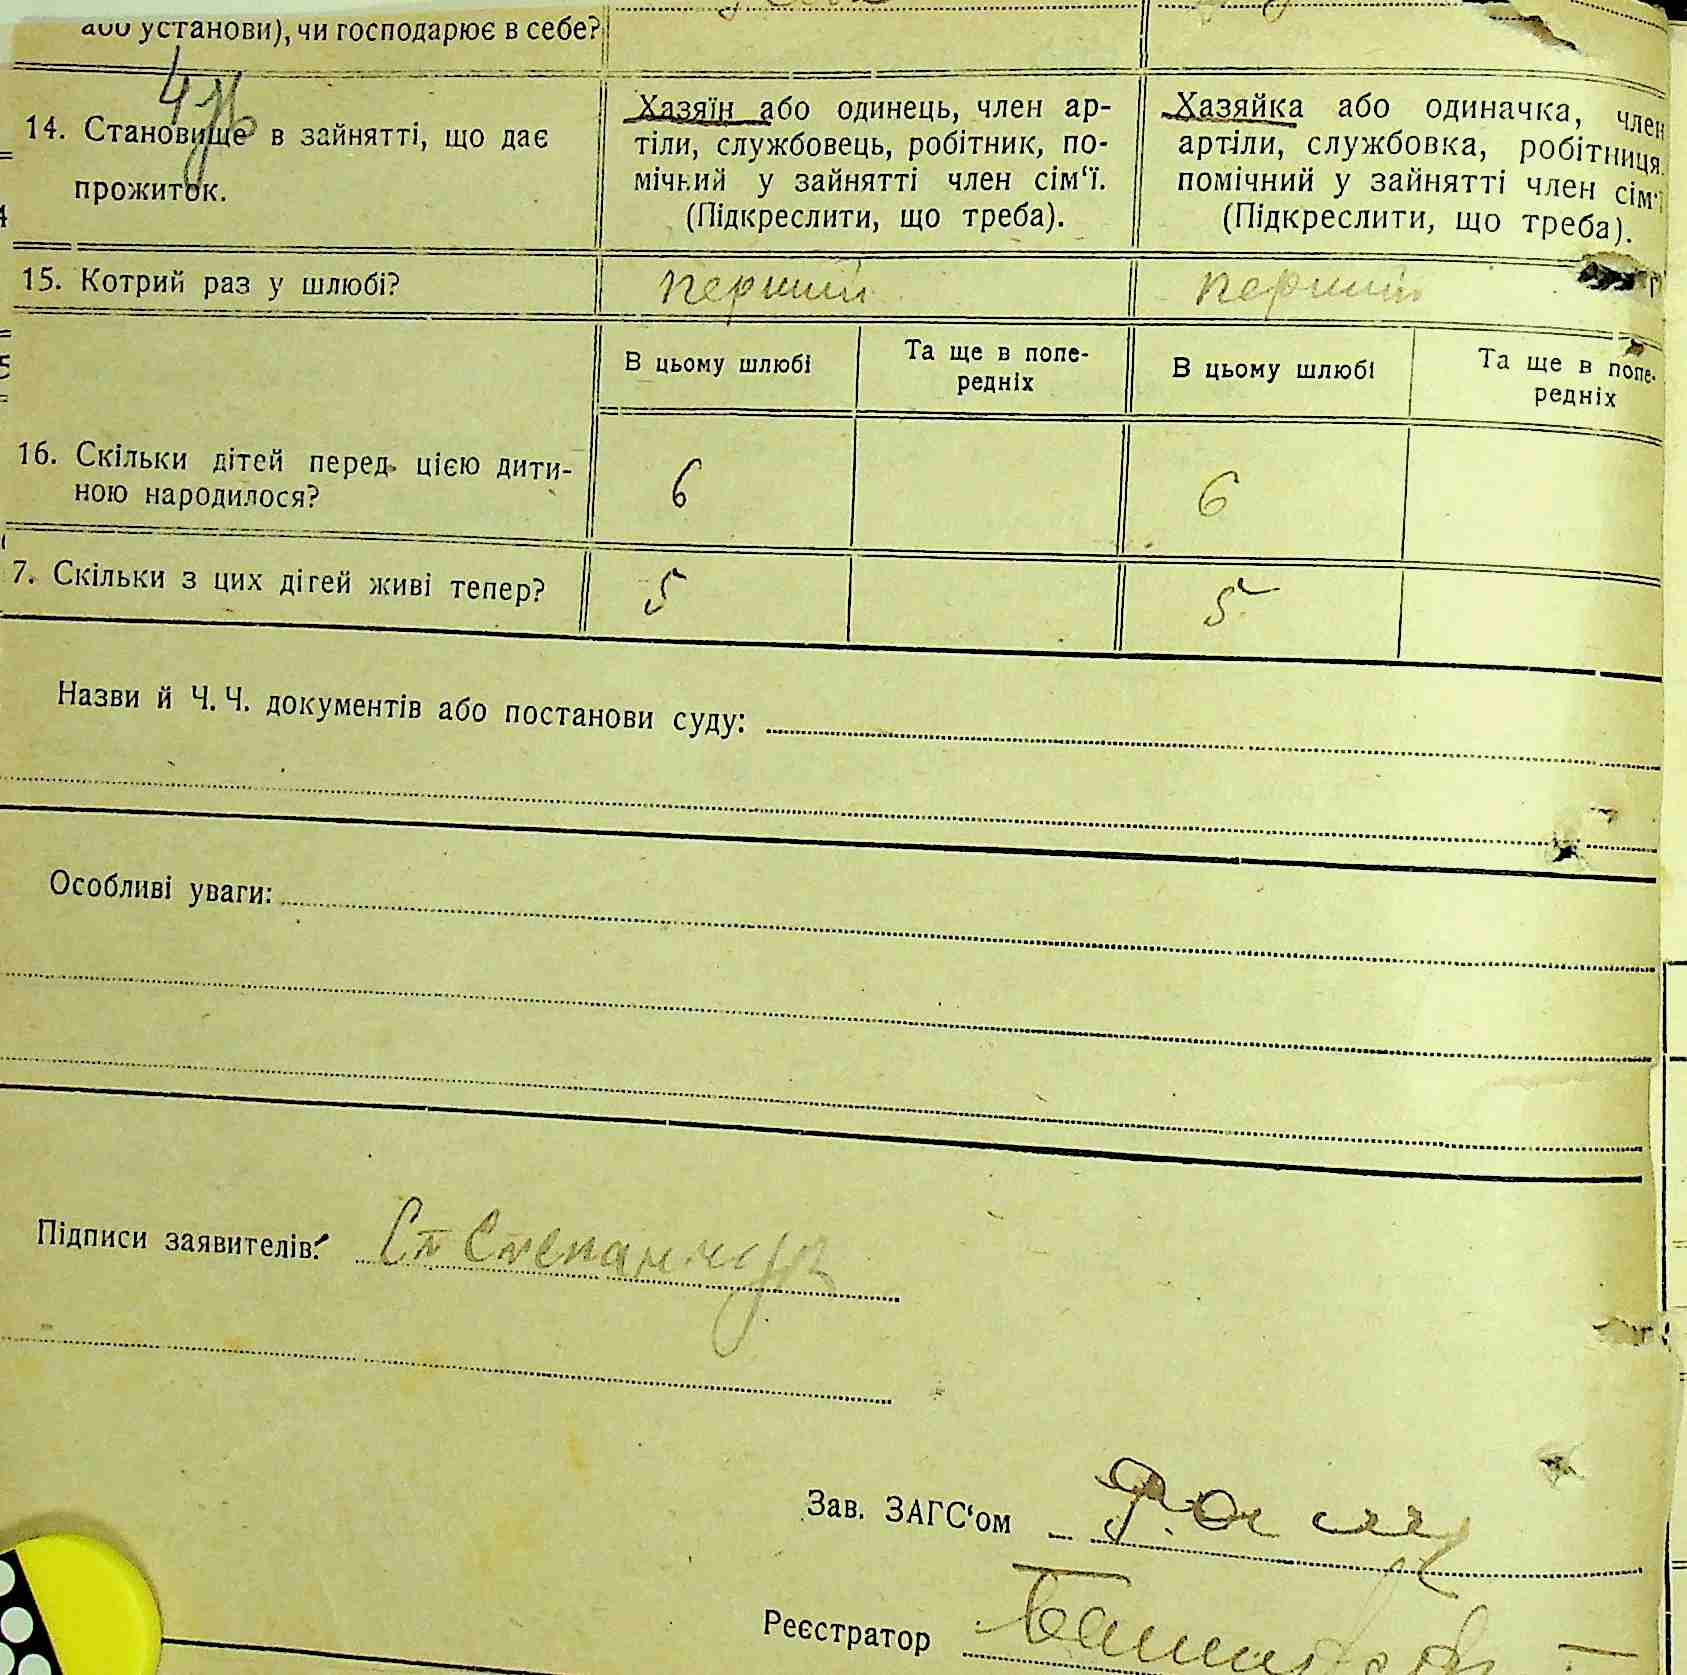 або установи), чи господарює в себе?
14. Становище в зайнятті, що дає
прожиток.
Хазяїн або одинець, член ар-
тіли, службовець, робітник, по-
мічний у зайнятті член сім‘ї.
(Підкреслити, що треба).
Хазяйка або одиначка, член
артіли, службовка, робітниця,
помічний у зайнятті член сім‘ї
(Підкреслити, що треба).
15. Котрий раз у шлюбі?
перший
перший
В цьому шлюбі
Та ще в попе-
редніх
В цьому шлюбі
Та ще в попе-
редніх
16. Скільки дітей перед цією дити-
ною народилося?
6
6
7. Скільки з цих дітей живі тепер?
5
5
Назви й Ч. Ч. документів або постанови суду:
Особливі уваги:
Підписи заявителів:
Зав. ЗАГС‘ом
Реєстратор